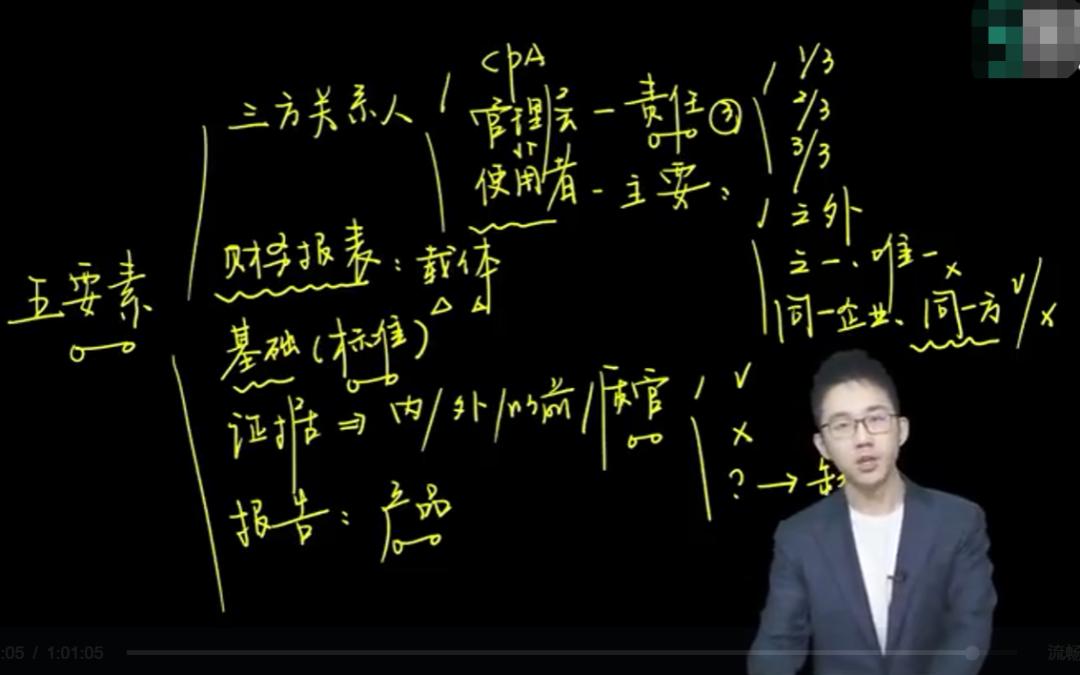 五要素
三方关系人
CPA
管理层 - 责任 ③
1/3
2/3
3/3
使用者 - 主要：
之外
之一、唯一 x
同一企业、同一方 √/x
财务报表：载体
基础（标准）
证据 ⇒ 内/外/以前/质疑
√
x
? →
报告：产品
:05 / 1:01:05
流畅